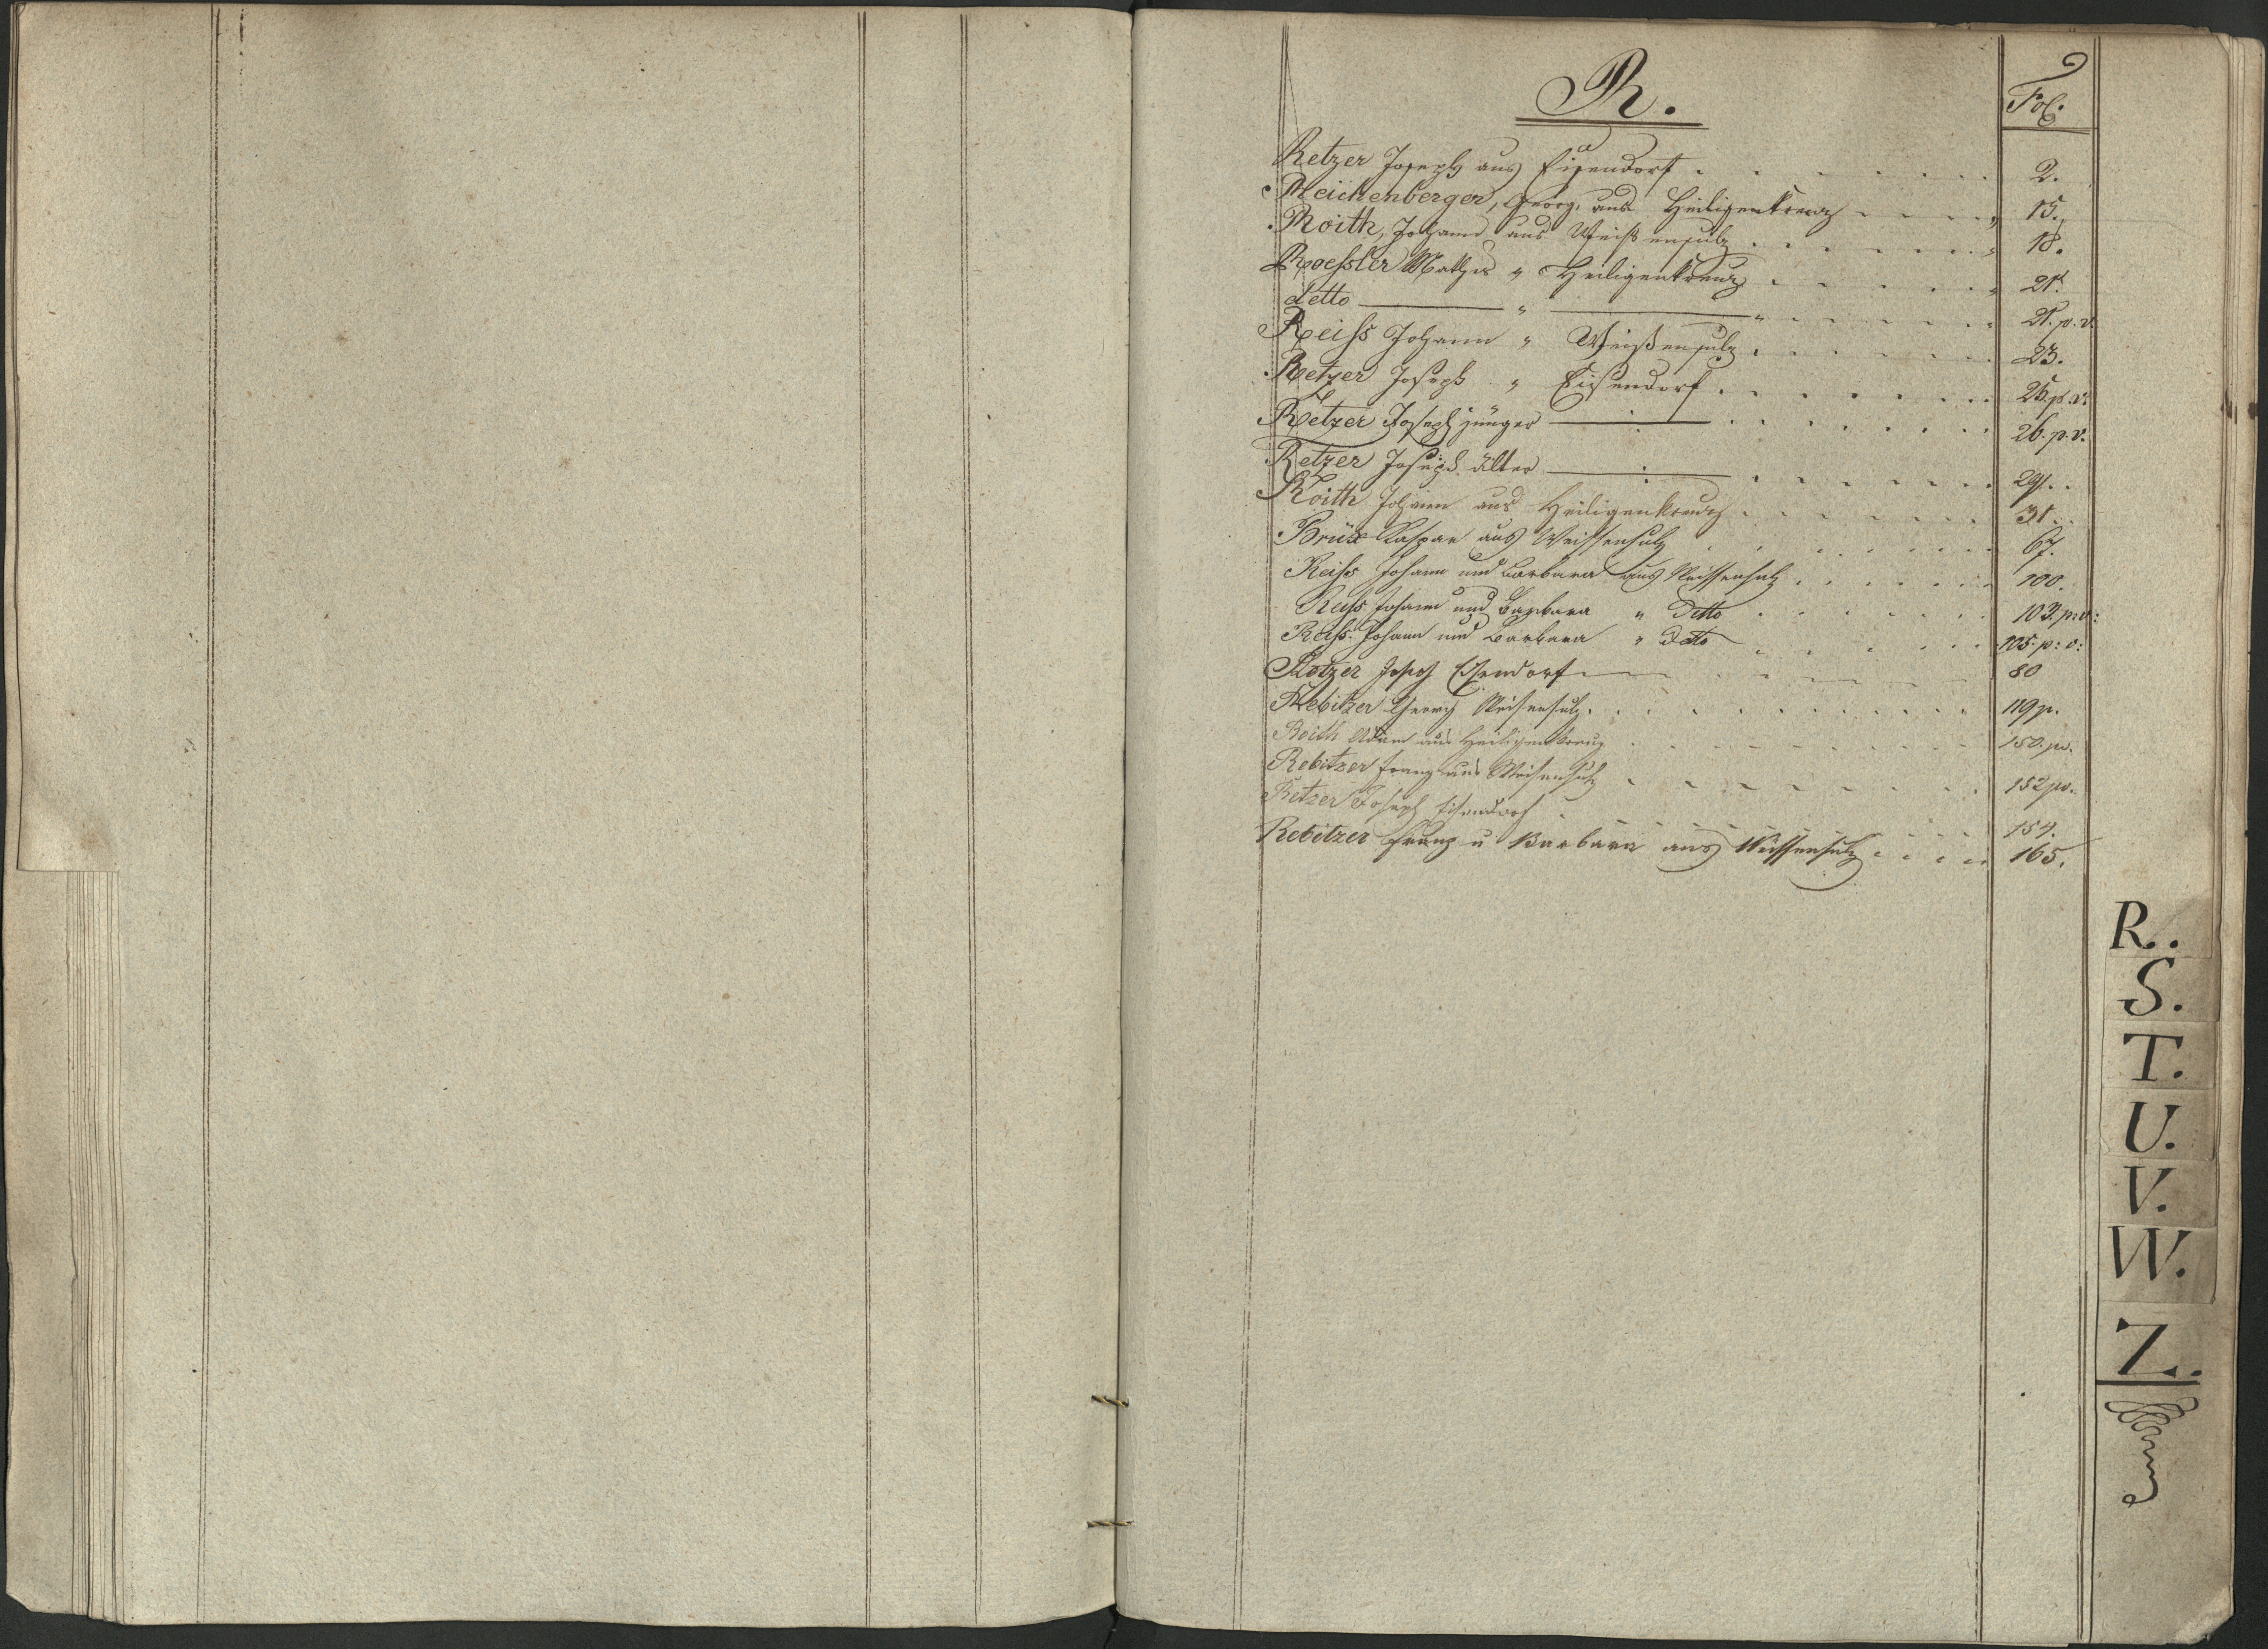 R.
Fol:
Retzer Joseph aus Eisendorf 2.
Reichenberger, Georg, aus Heiligenkreuz 15.
Roith, Johann aus Weißensulz 18.
Roessler Mathes " Heiligenkreuz 21.
detto " " 21. p. v.
Reiss Johann " Weißensulz 23.
Retzer Joseph " Eisendorf 25. p. v.
Retzer Joseph jünger 26. p. v.
Retzer Joseph älter 29.
Roith Johann aus Heiligenkreuz 31.
Brüx Kaspar aus Weissensulz 67.
Reiss Johann und Barbara aus Weissensulz 100.
Reiss Johann und Barbara " Detto 103. p: v:
Reiss Johann und Barbara " Detto 105. p: v:
Retzer Joseph Eisendorf 80
Rebitzer Georg Weisensulz 119 p.
Roith Adam aus Heiligenkreuz 150. pv.
Rebitzer Franz aus Weisensulz 152 pv.
Retzer Joseph Eisendorf 154.
Rebitzer Franz u Barbara aus Weissensulz 165.
R.
S.
T.
U.
V.
W.
Z.